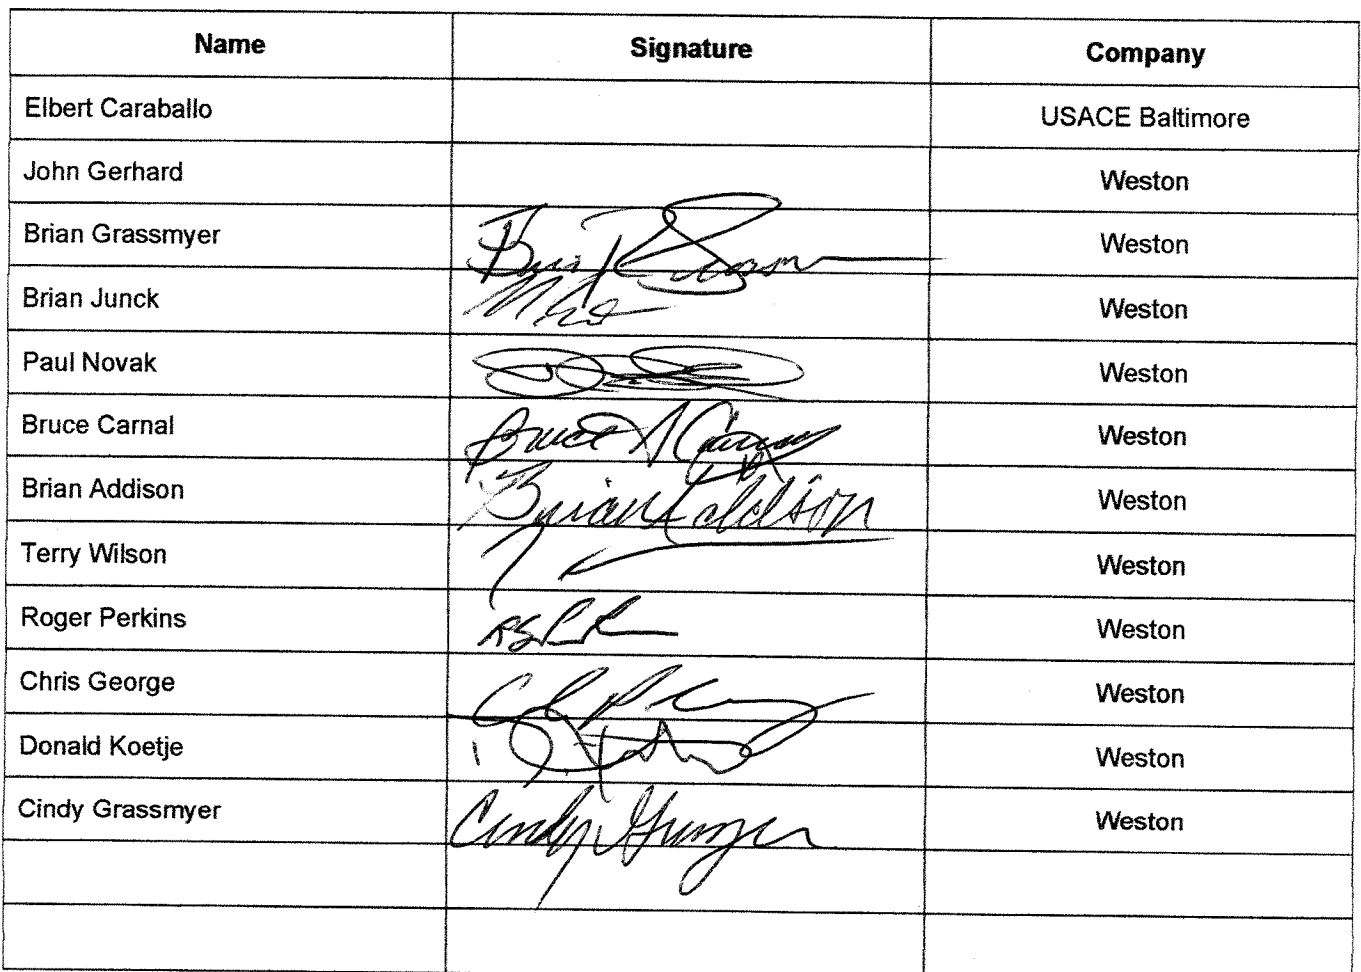 Name Signature Company
Elbert Caraballo USACE Baltimore
John Gerhard Weston
Brian Grassmyer Weston
Brian Junck Weston
Paul Novak Weston
Bruce Carnal Bruce Weston
Brian Addison Brian Addison Weston
Terry Wilson Weston
Roger Perkins Weston
Chris George Weston
Donald Koetje Weston
Cindy Grassmyer Cindy Weston